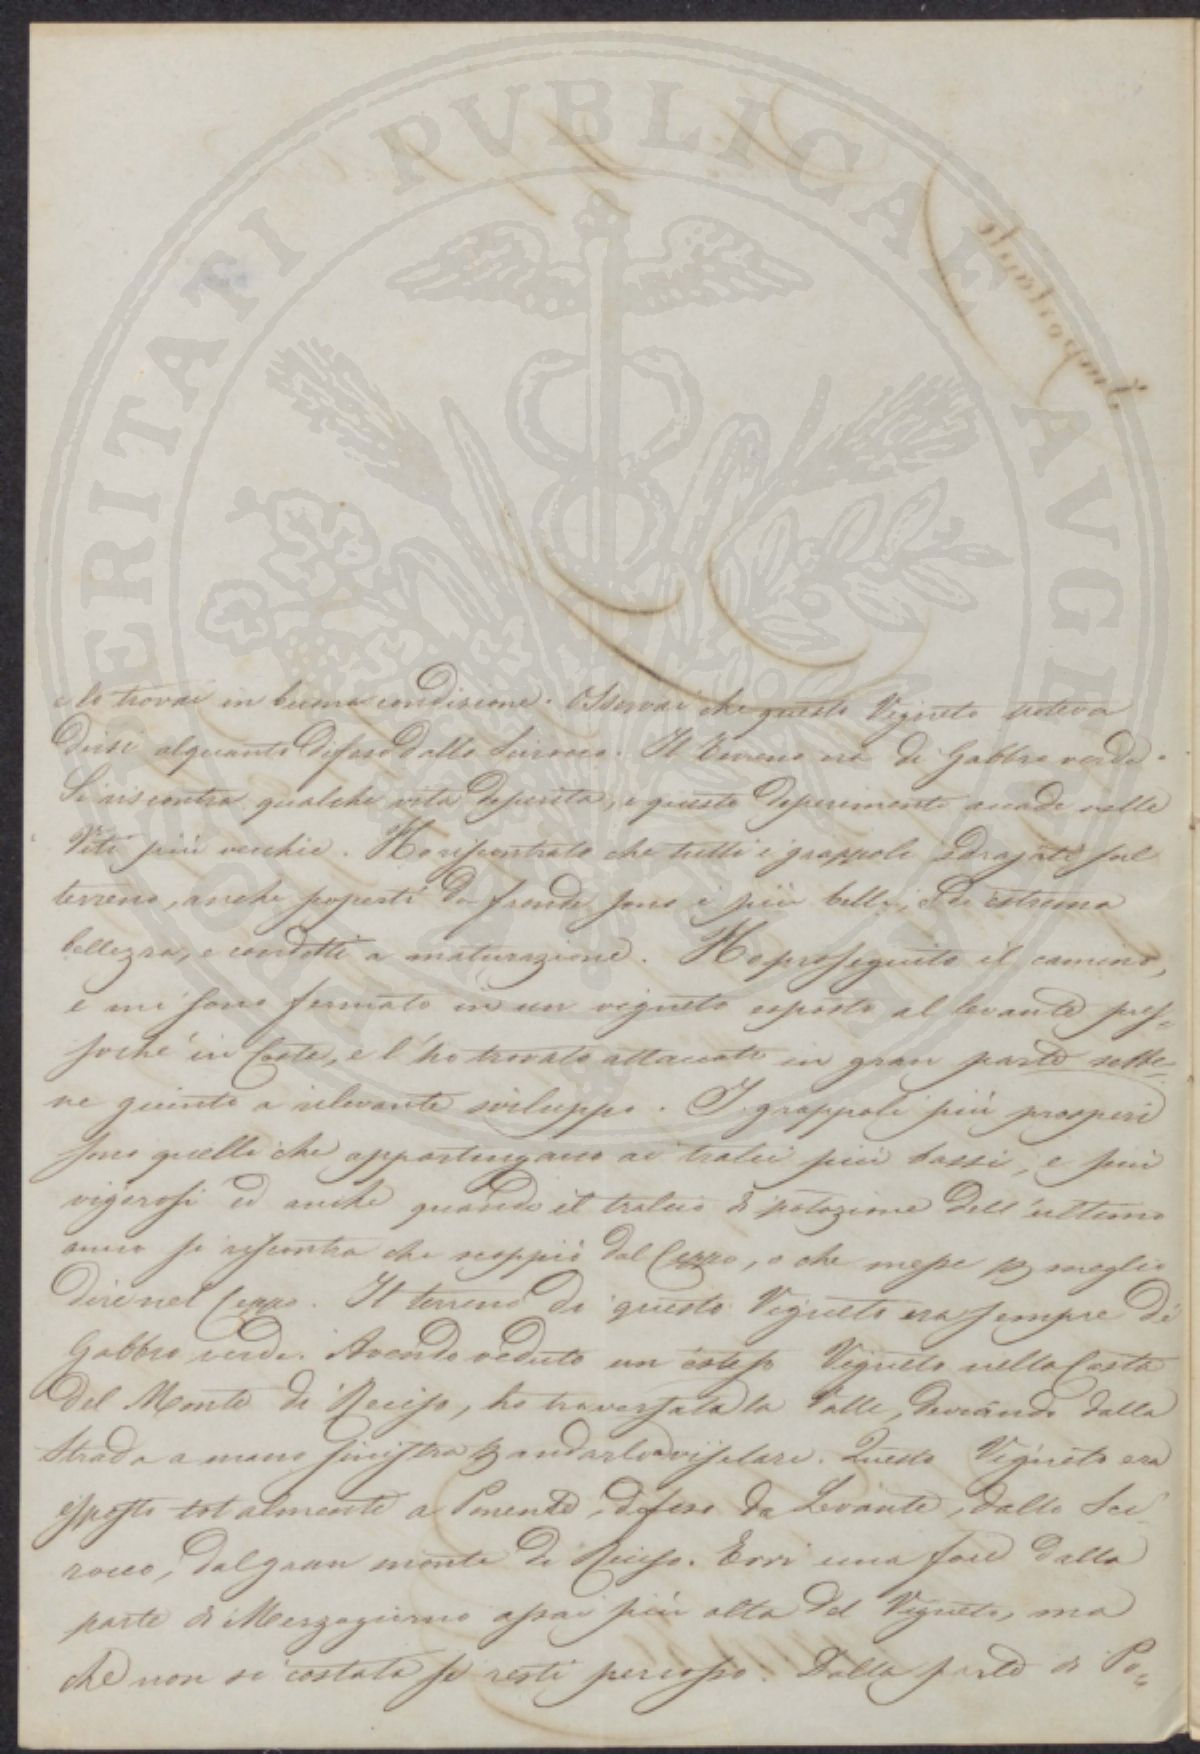 PROSPERITATI PVBLICAE AVGENDAE
Importante
e lo trovai in buona condizione. Osservai che questo Vigneto poteva
Dirsi alquanto difeso dallo Scirocco. Il Terreno era di Gabbro verde.
Si riscontra qualche vite deperita, e questo deperimento accade nelle
Viti più vecchie. Ho riscontrato che tutti i grappoli sdrajati sul
terreno, anche coperti da fronde sono i più belli, e di estrema
bellezza, e condotti a maturazione. Ho proseguito il camino,
e mi sono fermato in un vigneto esposto al levante pres=
soché in Costa, e l'ho trovato attaccato in gran parte sebbe=
ne giunto a rilevante sviluppo. I grappoli più prosperi
sono quelli che appartengano ai tralci più bassi, e più
vigorosi ed anche quando il tralcio di potazione dell'ultimo
anno si riscontra che scoppiò dal Ceppo, o che messe p meglio
dire nel Ceppo. Il terreno di questo Vigneto era sempre di
Gabbro verde. Avendo veduto un esteso Vigneto nella Costa
del Monte di Reciso, ho traversata la Valle, deviando dalla
Strada a mano sinistra p andarlo a visitare. Questo Vigneto era
esposto totalmente a Ponente, difeso da Levante, dallo Sci=
rocco, dal gran monte di Reciso. Evvi una foce dalla
parte di Mezzogiorno assai più alta del Vigneto, ma
che non si costata se resti percosso. Dalla parte di Po=